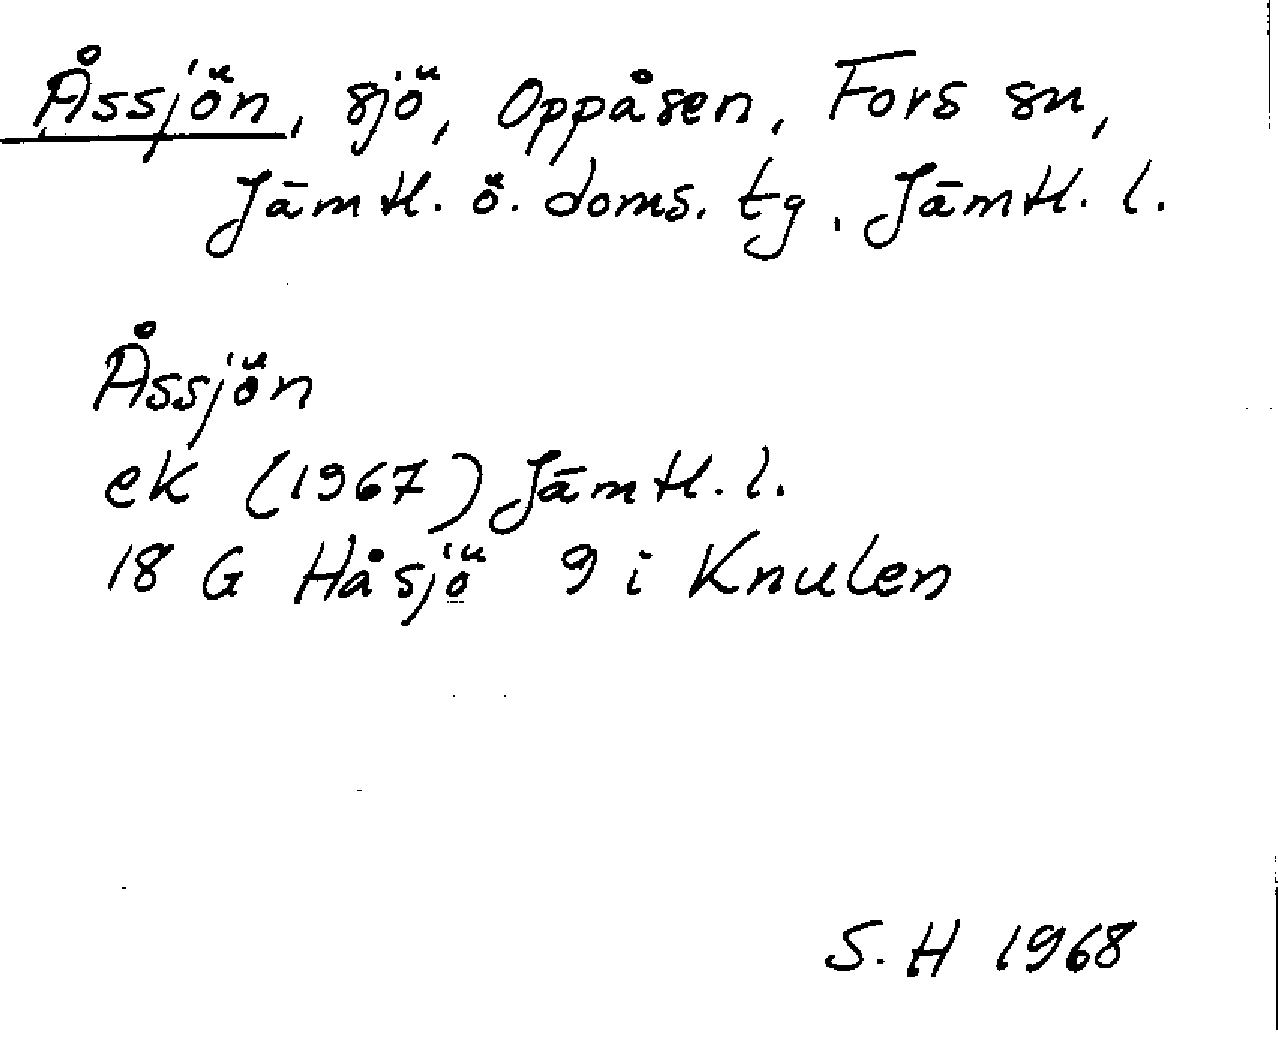 Åssjön, sjö, Oppåsen, Fors sn,
Jämtl. ö. doms. tg, Jämtl. l.
Åssjön
ek (1967) Jämtl. l.
18 G Håsjö 9 i Knulen
S. H 1968